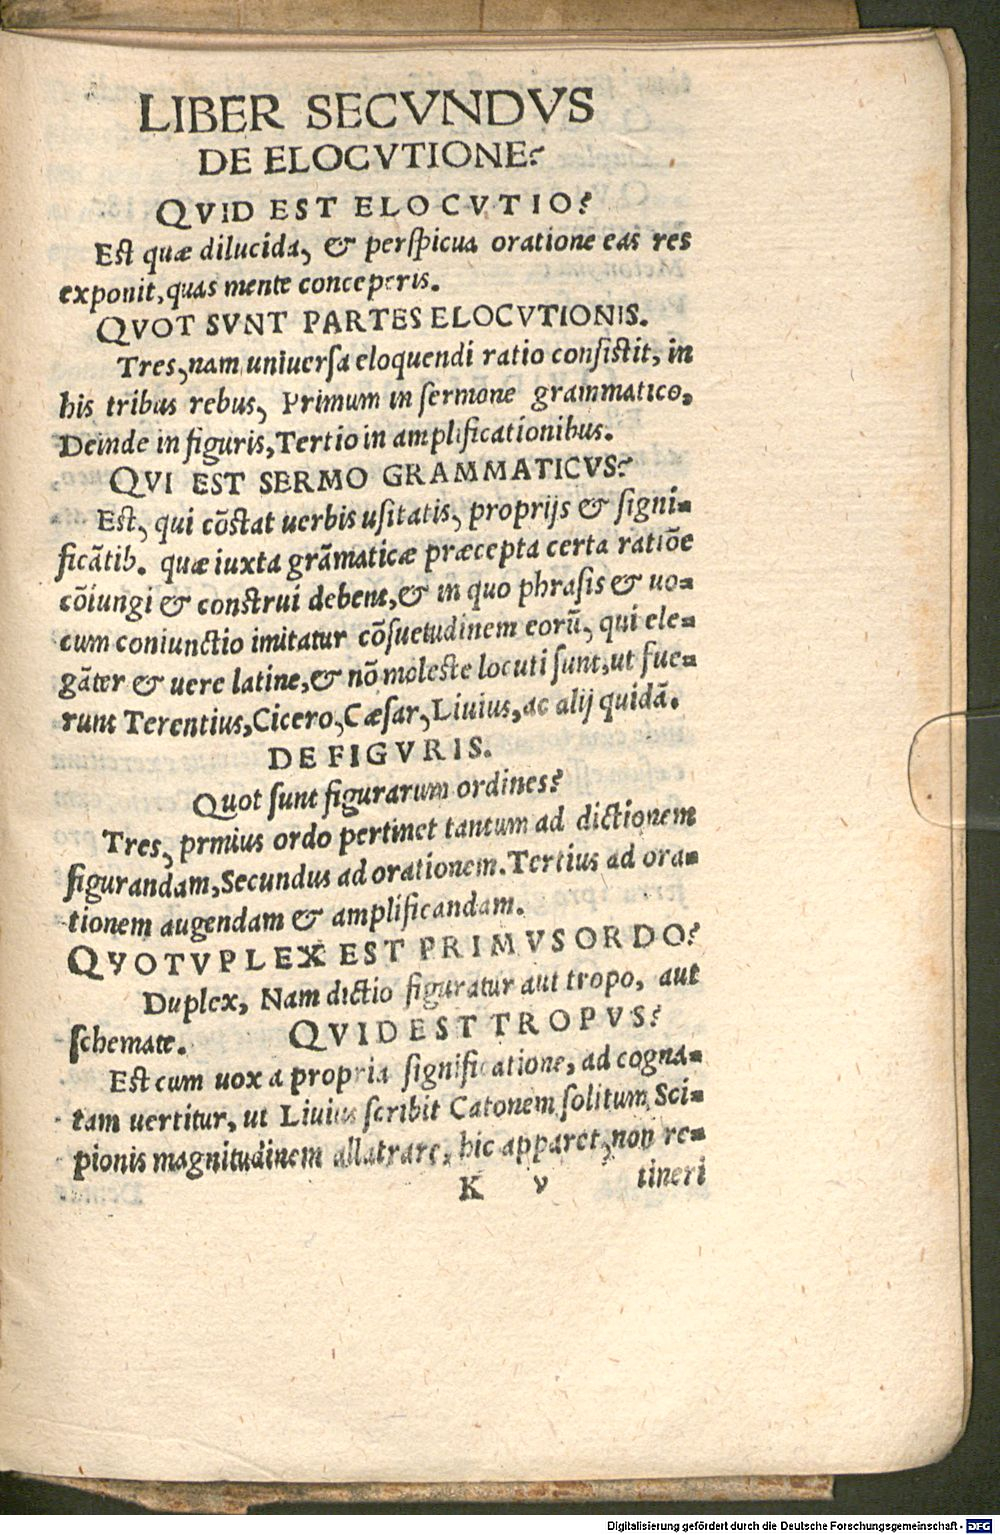 LIBER SECVNDVS
DE ELOCVTIONE?
QVID EST ELOCVTIO?
Est quæ dilucida, & perspicua oratione eas res
exponit, quas mente conceperis.
QVOT SVNT PARTES ELOCVTIONIS.
Tres, nam uniuersa eloquendi ratio consistit, in
his tribus rebus, Primum in sermone grammatico,
Deinde in figuris, Tertio in amplificationibus.
QVI EST SERMO GRAMMATICVS?
Est, qui cōstat uerbis usitatis, proprijs & signi-
ficātib. quæ iuxta grāmaticæ præcepta certa ratiōe
cōiungi & construi debent, & in quo phrasis & uo-
cum coniunctio imitatur cōsuetudinem eorū, qui ele-
gāter & uere latine, & nō moleste locuti sunt, ut fue-
runt Terentius, Cicero, Cæsar, Liuius, ac alij quidā.
DE FIGVRIS.
Quot sunt figurarum ordines?
Tres, prmius ordo pertinet tantum ad dictionem
figurandam, Secundus ad orationem. Tertius ad ora-
tionem augendam & amplificandam.
QVOTVPLEX EST PRIMVS ORDO?
Duplex, Nam dictio figuratur aut tropo, aut
schemate. QVID EST TROPVS?
Est cum uox a propria significatione, ad cogna-
tam uertitur, ut Liuius scribit Catonem solitum Sci-
pionis magnitudinem allatrare, hic apparet, non re-
K v tineri
Digitalisierung gefördert durch die Deutsche Forschungsgemeinschaft - DFG